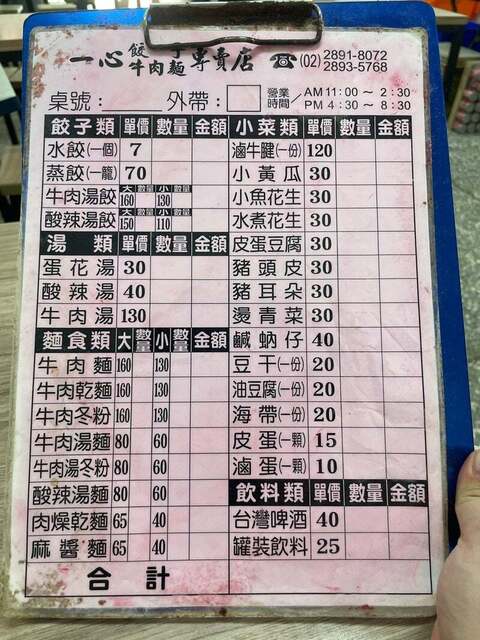 一心餃子牛肉麵專賣店 ☎(02)2891-8072 2893-5768
桌號: 外帶: 營業時間/AM 11:00~2:30 PM 4:30~8:30
餃子類 單價 數量 金額
水餃(一個) 7
蒸餃(一籠) 70
牛肉湯餃 大 數量 小 數量 160 130
酸辣湯餃 大 數量 小 數量 150 110
湯類 單價 數量 金額
蛋花湯 30
酸辣湯 40
牛肉湯 130
麵食類 大 數量 小 數量 金額
牛肉麵 160 130
牛肉乾麵 160 130
牛肉冬粉 160 130
牛肉湯麵 80 60
牛肉湯冬粉 80 60
酸辣湯麵 80 60
肉燥乾麵 65 40
麻醬麵 65 40
合計
小菜類 單價 數量 金額
滷牛腱(一份) 120
小黃瓜 30
小魚花生 30
水煮花生 30
皮蛋豆腐 30
豬頭皮 30
豬耳朵 30
燙青菜 30
鹹蚋仔 40
豆干(一份) 20
油豆腐(一份) 20
海帶(一份) 20
皮蛋(一顆) 15
滷蛋(一顆) 10
飲料類 單價 數量 金額
台灣啤酒 40
罐裝飲料 25